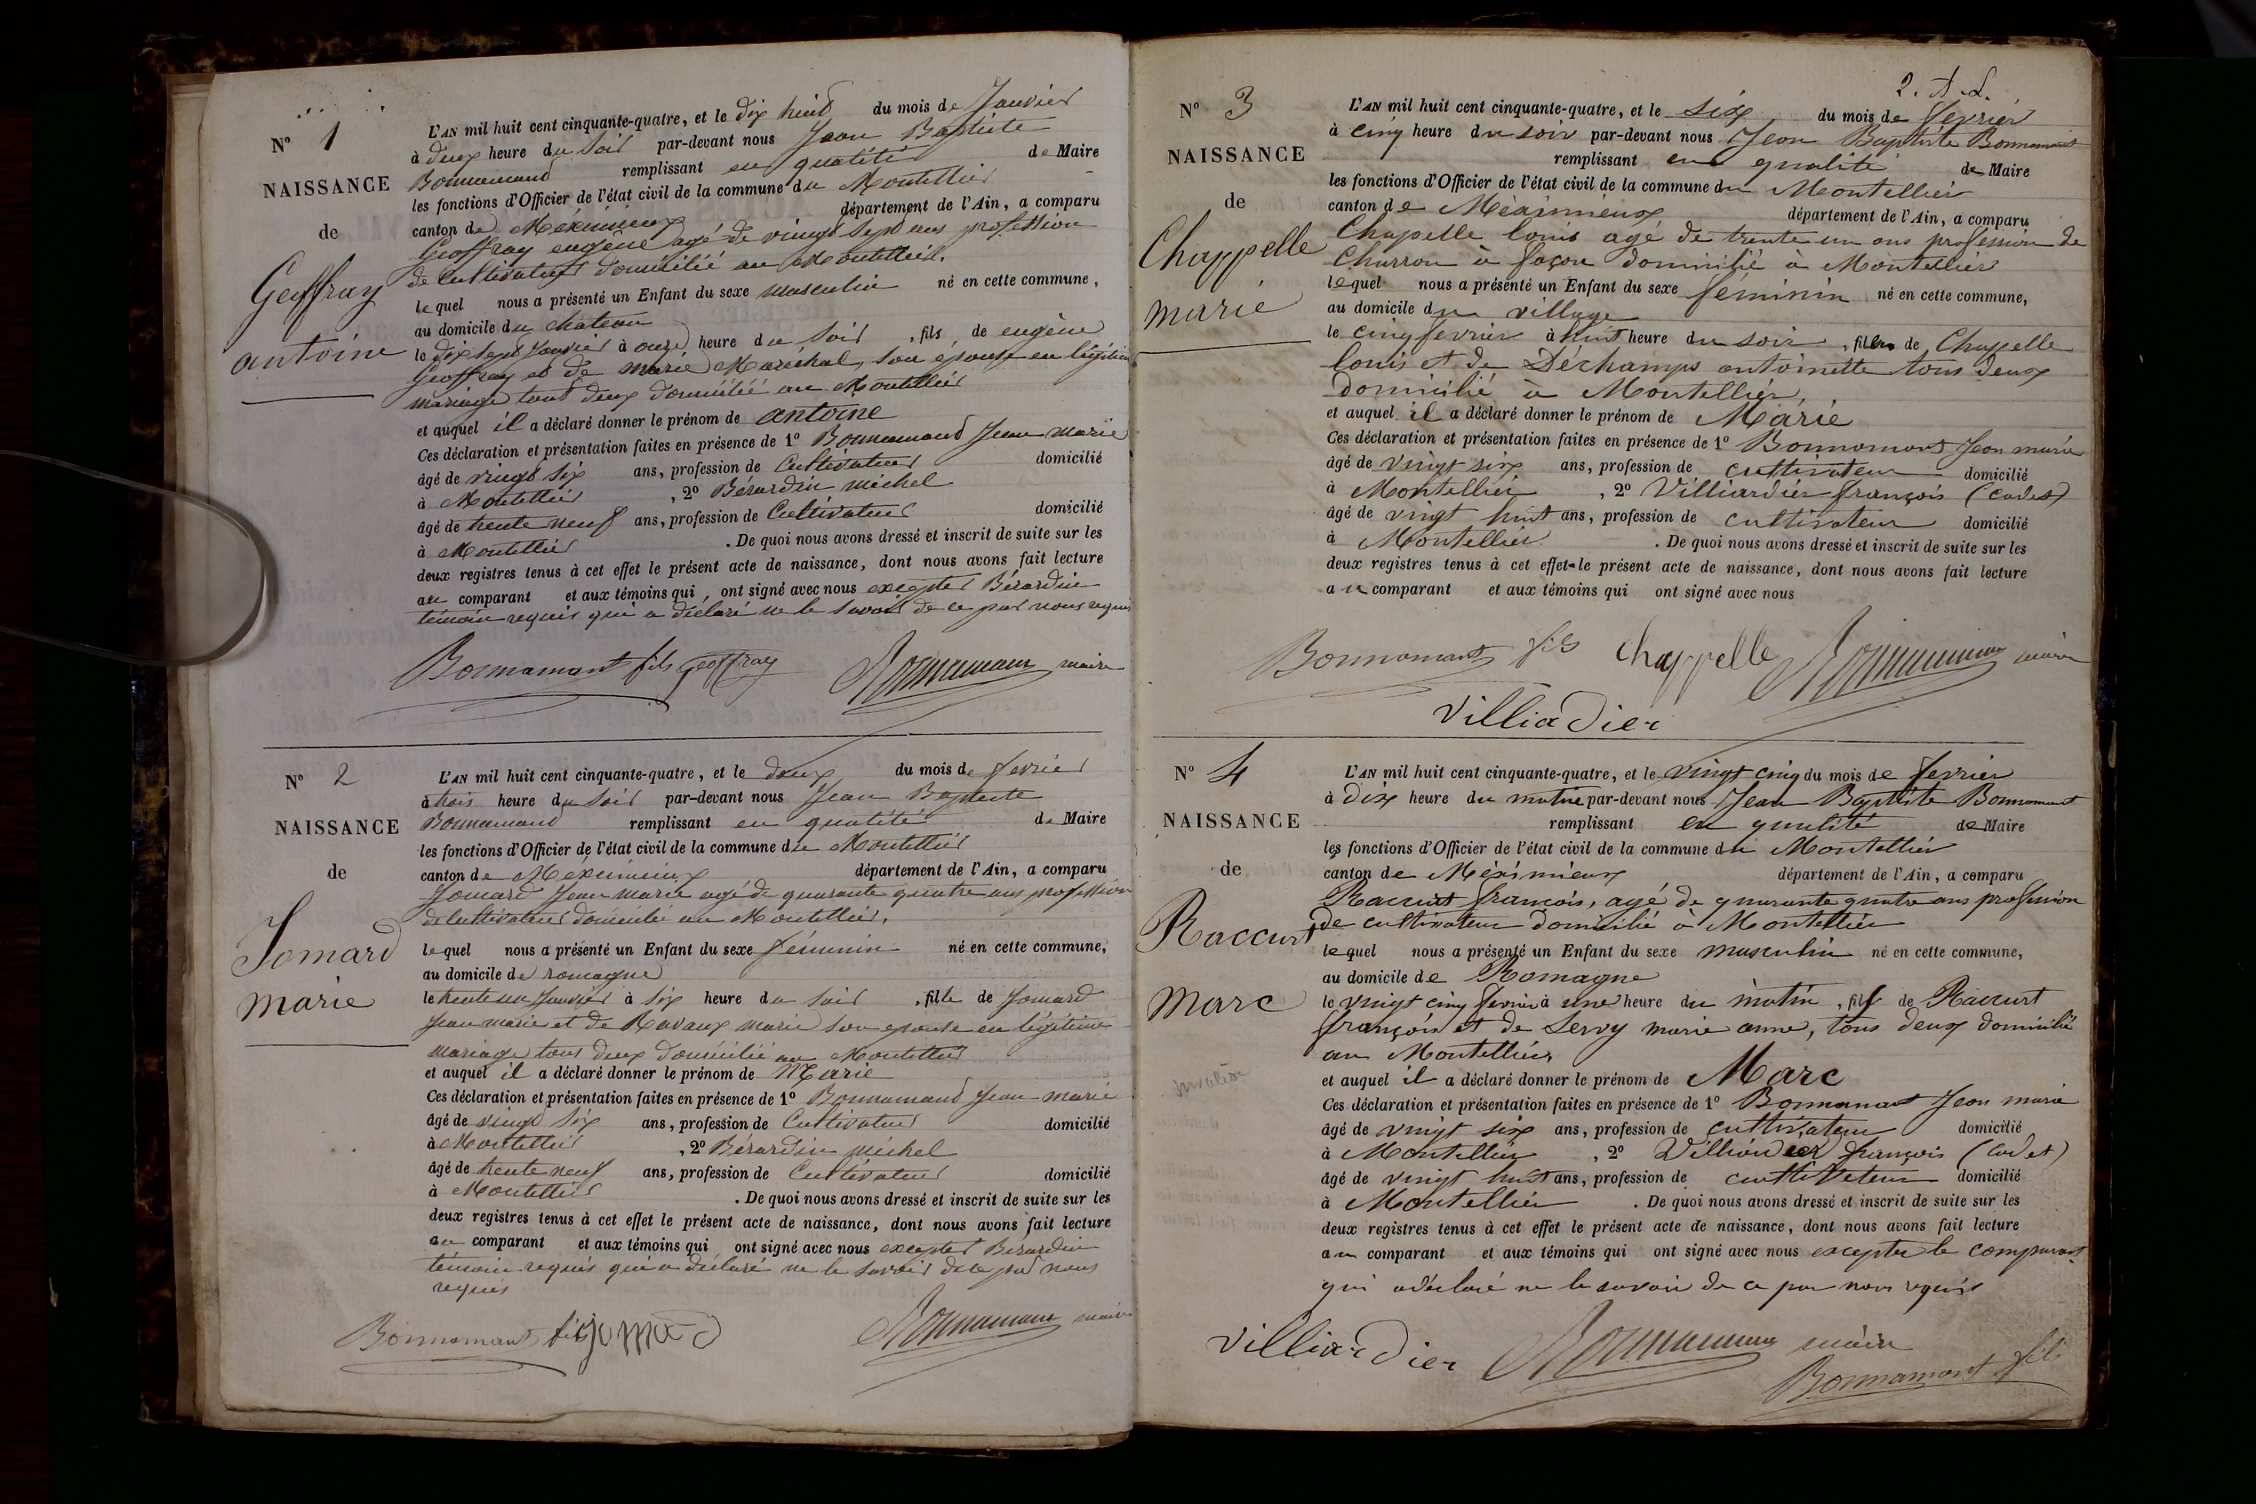 N° 1
NAISSANCE
de
Geoffray
antoine
L'AN mil huit cent cinquante-quatre, et le dix huit du mois de Janvier
à deux heure du soir par-devant nous Jean Baptiste
Bonnamand remplissant en qualité de Maire
les fonctions d'Officier de l'état civil de la commune du Montellier
canton de Méximieux département de l'Ain, a comparu
Geoffray eugène agé de vingt sept ans profession
de Cultivateur domicilié au Montellier.
lequel nous a présenté un Enfant du sexe masculin né en cette commune,
au domicile du chateau
le dix sept Janvier à onze heure du soir, fils de eugène
Geoffray et de marie Maréchal, son épouse en légitime
mariage tout deux domicilié au Montellier
et auquel il a déclaré donner le prénom de antoine
Ces déclaration et présentation faites en présence de 1° Bonnamand Jean marie
âgé de vingt six ans, profession de Cultivateur domicilié
à Montellier, 2° Bérardin michel
âgé de trente neuf ans, profession de Cultivateur domicilié
à Montellier. De quoi nous avons dressé et inscrit de suite sur les
deux registres tenus à cet effet le présent acte de naissance, dont nous avons fait lecture
au comparant et aux témoins qui, ont signé avec nous excepter Bérardin
témoin requis qui a déclaré ne le savoir de ce par nous requis
Bonnamant fils Geoffray Bonnamant maire
N° 2
NAISSANCE
de
Jomard
marie
L'AN mil huit cent cinquante-quatre, et le deux du mois de fevrier
à trois heure du soir par-devant nous Jean Baptiste
Bonnamand remplissant en qualité de Maire
les fonctions d'Officier de l'état civil de la commune du Montellier
canton de Méximieux département de l'Ain, a comparu
Jomard Jean marie agé de quarante quatre ans profession
de Cultivateur domicilié au Montellier.
lequel nous a présenté un Enfant du sexe féminin né en cette commune,
au domicile de romagne
le trente un Janvier à six heure du soir, fille de Jomard
Jean marie et de Ravaux marie son epouse en légitime
mariage tous deux domicilié au Montellier
et auquel il a déclaré donner le prénom de Marie
Ces déclaration et présentation faites en présence de 1° Bonnamand Jean marie
âgé de vingt six ans, profession de Cultivateur domicilié
à Montellier, 2° Bérardin michel
âgé de trente neuf ans, profession de Cultivateur domicilié
à Montellier. De quoi nous avons dressé et inscrit de suite sur les
deux registres tenus à cet effet le présent acte de naissance, dont nous avons fait lecture
au comparant et aux témoins qui ont signé avec nous excepter Bérardin
témoin requis qui a déclaré ne le savoir de ce par nous
requis
Bonnamant fils jomard Bonnamant maire
2. A. L.
N° 3
NAISSANCE
de
Chappelle
marie
L'AN mil huit cent cinquante-quatre, et le six du mois de fevrier
à cinq heure du soir par-devant nous Jean Baptiste Bonnamant
remplissant en qualité de Maire
les fonctions d'Officier de l'état civil de la commune du Montellier
canton de Méximieux département de l'Ain, a comparu
Chapelle louis agé de trente un ans profession de
Charron à façon domicilié à Montellier
lequel nous a présenté un Enfant du sexe féminin né en cette commune,
au domicile du village
le cinq fevrier à huit heure du soir, fille de Chapelle
louis et de Déchamps antoinette tous deux
domicilié à Montellier,
et auquel il a déclaré donner le prénom de Marie
Ces déclaration et présentation faites en présence de 1° Bonnamant Jean marie
âgé de vingt six ans, profession de cultivateur domicilié
à Montellier, 2° Villiardier françois (cadet)
âgé de vingt huit ans, profession de cultivateur domicilié
à Montellier. De quoi nous avons dressé et inscrit de suite sur les
deux registres tenus à cet effet le présent acte de naissance, dont nous avons fait lecture
au comparant et aux témoins qui ont signé avec nous
Bonnamant fils Chappelle Bonnamant maire
Villiadier
N° 4
NAISSANCE
de
Raccurt
Marc
L'AN mil huit cent cinquante-quatre, et le vingt cinq du mois de fevrier
à dix heure du matin par-devant nous Jean Baptiste Bonnamant
remplissant en qualité de Maire
les fonctions d'Officier de l'état civil de la commune du Montellier
canton de Méximieux département de l'Ain, a comparu
Raccurt francois, agé de quarante quatre ans profession
de cultivateur domicilié à Montellier
lequel nous a présenté un Enfant du sexe masculin né en cette commune,
au domicile de Romagne
le vingt cinq fevrier à une heure du matin, fils de Raccurt
françois et de Servy marie anne, tous deux domicilié
au Montellier
et auquel il a déclaré donner le prénom de Marc
Ces déclaration et présentation faites en présence de 1° Bonnamant Jean marie
âgé de vingt six ans, profession de cultivateur domicilié
à Montellier, 2° Villiardier françois (cadet)
âgé de vingt huit ans, profession de cultivateur domicilié
à Montellier. De quoi nous avons dressé et inscrit de suite sur les
deux registres tenus à cet effet le présent acte de naissance, dont nous avons fait lecture
au comparant et aux témoins qui ont signé avec nous excepter le comparant
qui a déclaré ne le savoir de ce par nous requis
Villiardier Bonnamant maire
Bonnamant fils